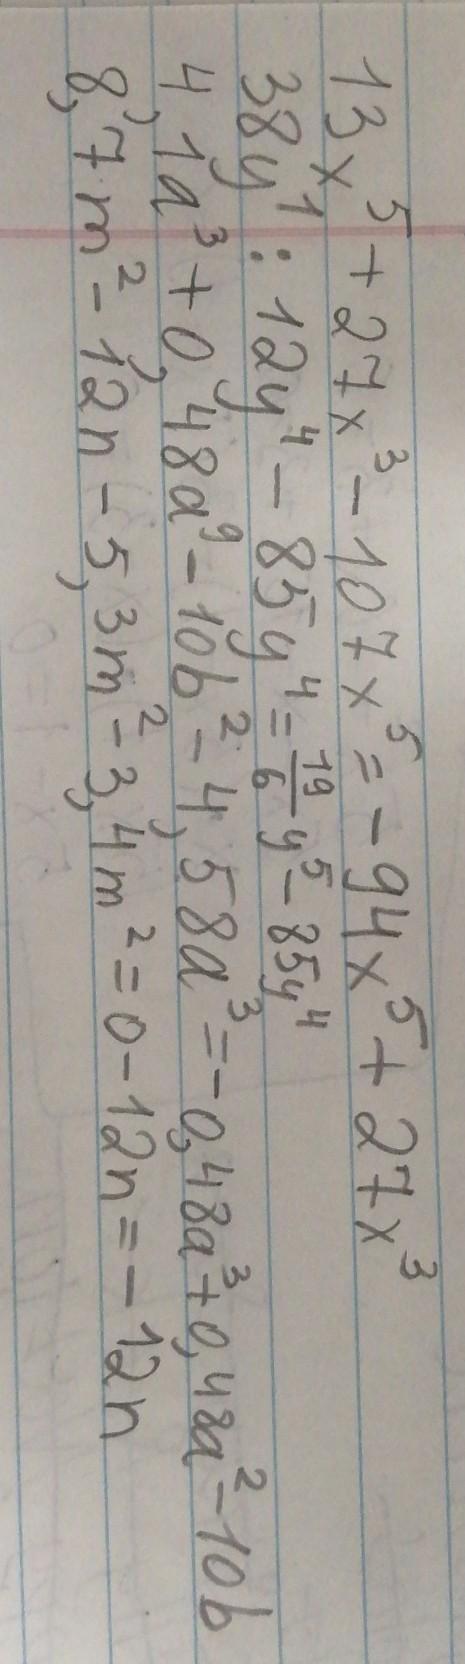 13x⁵ + 27x³ - 107x⁵ = -94x⁵ + 27x³
38y¹ : 12y⁴ - 85y⁴ = 19/6 y⁵ - 85y⁴
4,1a³ + 0,48a⁹ - 10b² - 4,58a³ = -0,48a³ + 0,48a² - 10b
8,7m² - 12n - 5,3m² - 3,4m² = 0 - 12n = -12n